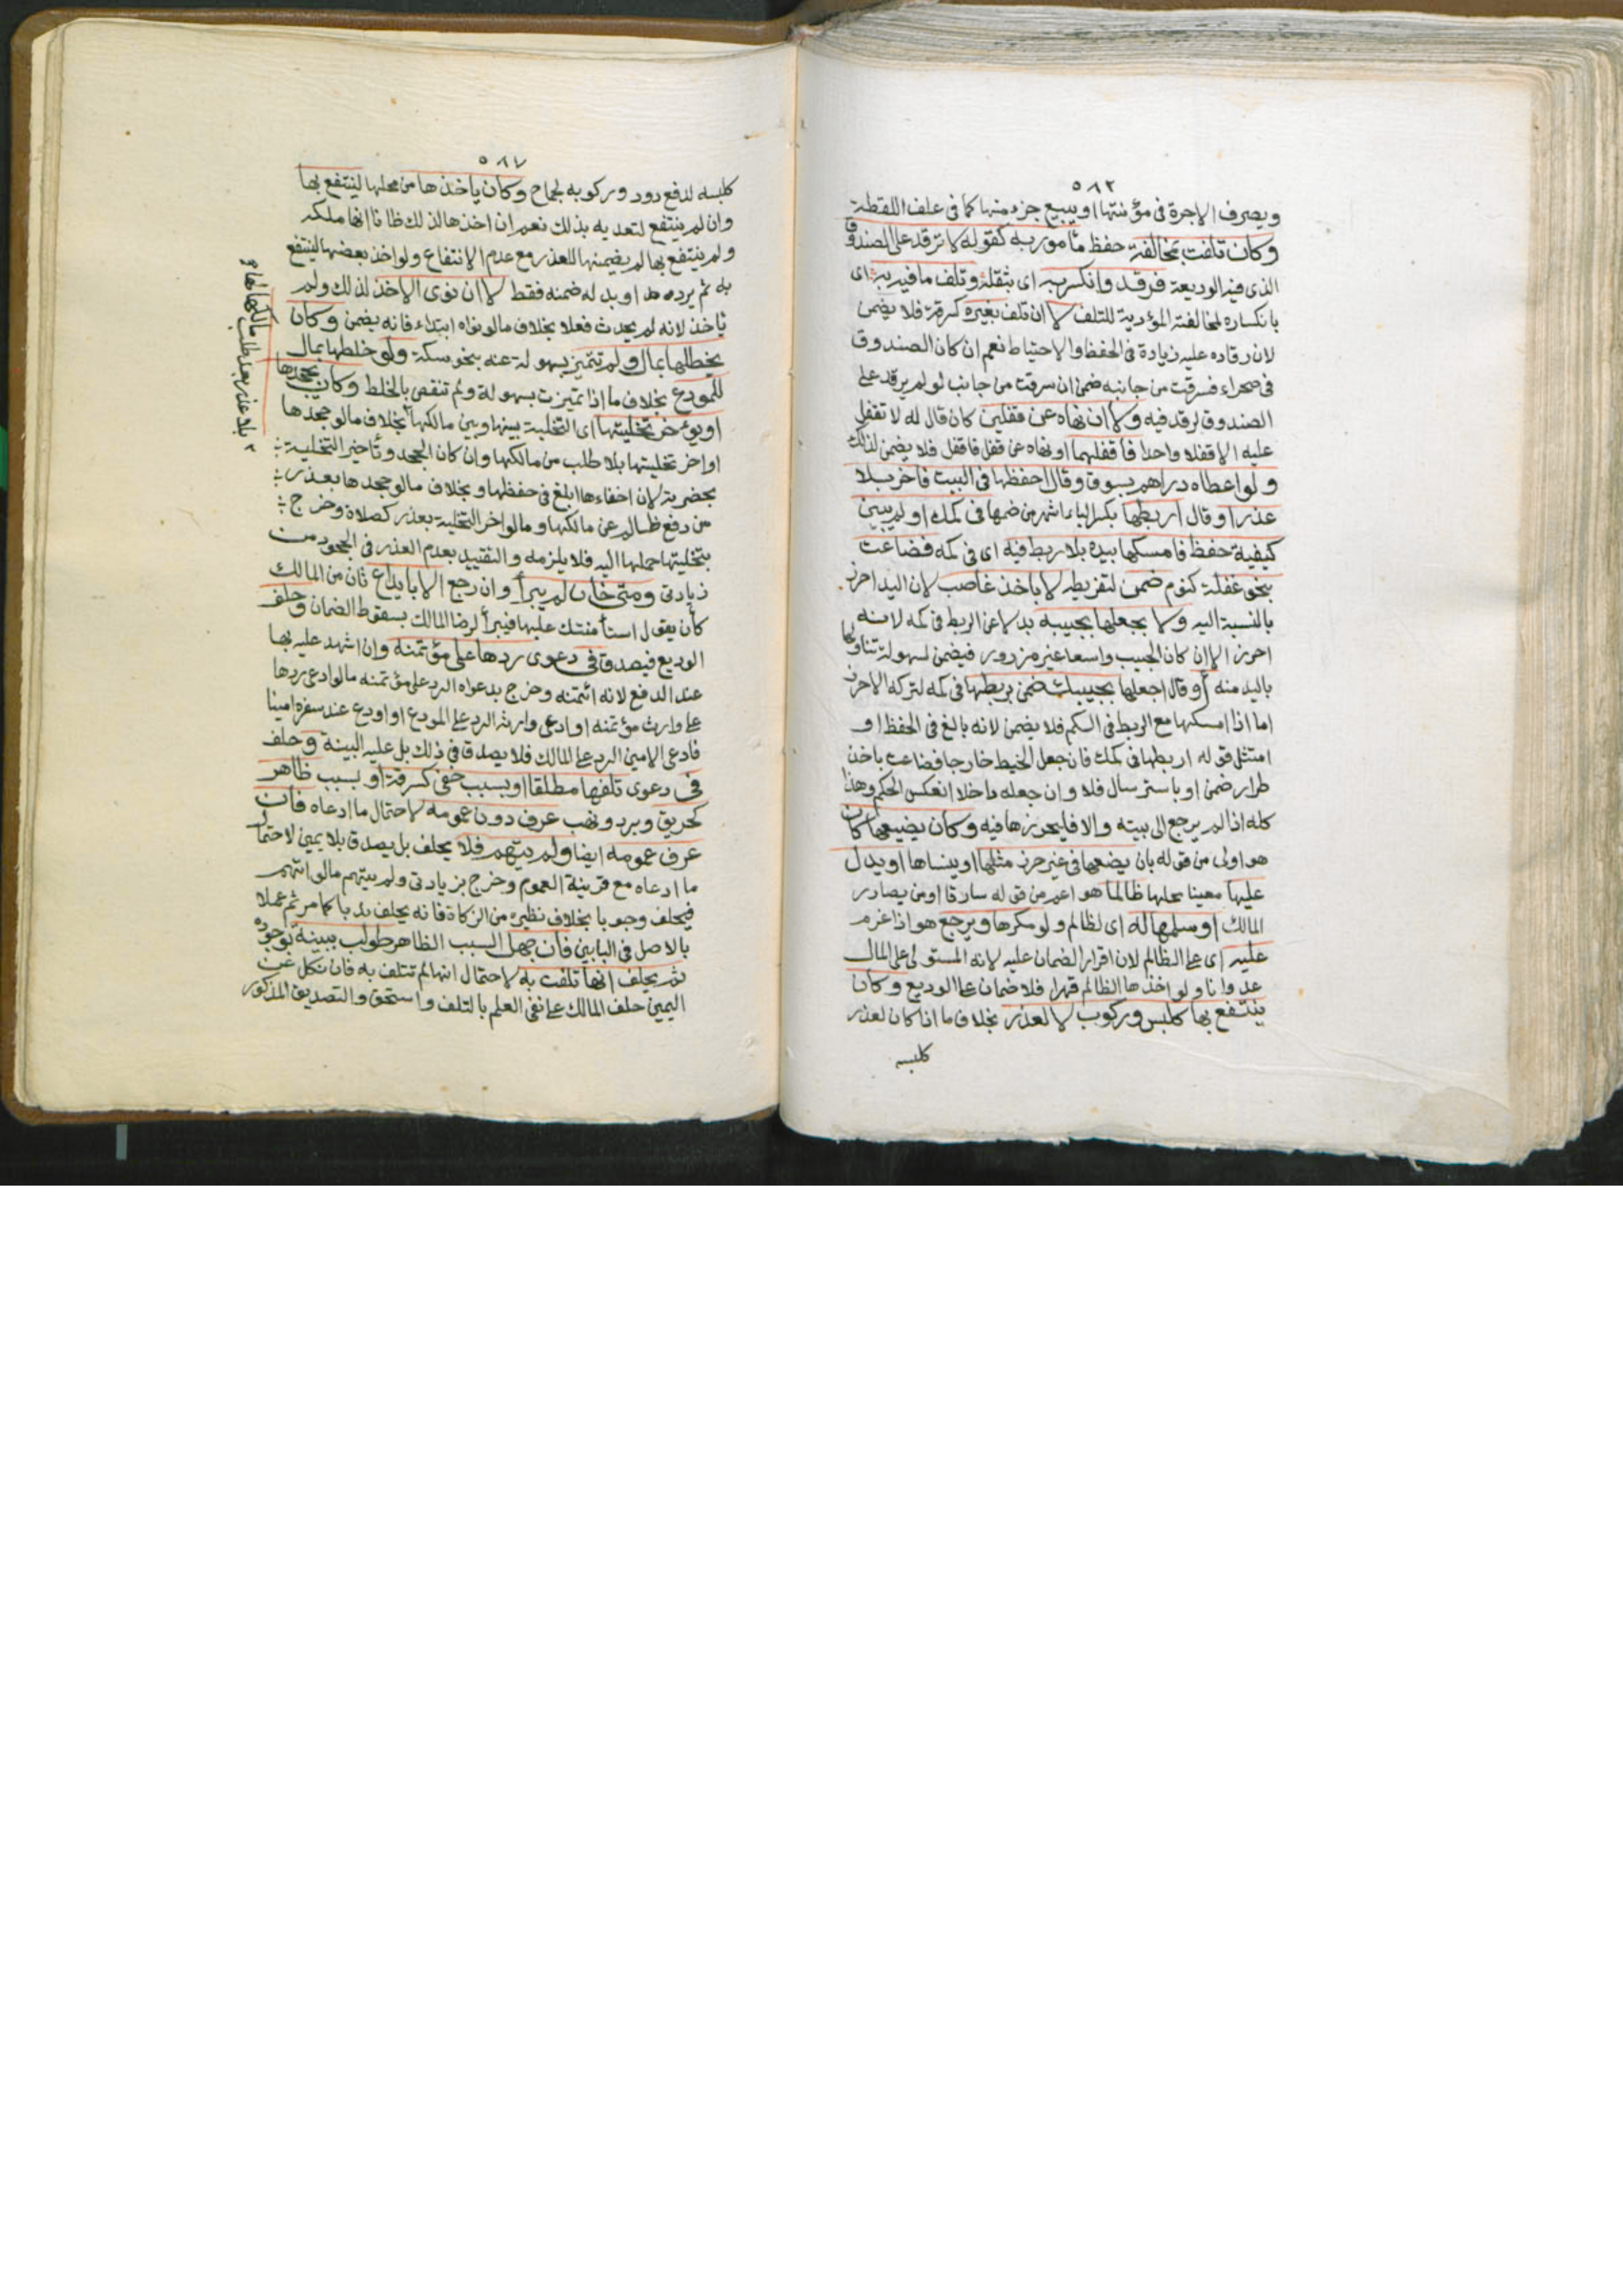 ٥٨٢
ويصرف الاجرة في مؤنتها او يبيع جزء منها كما في علف اللقطة
وكان تلفت بمخالفة حفظ مأمور به كقوله لا ترقد على الصندوق
الذي فيه الوديعة فرقد وانكسر به اى بثقله وتلف ما فيه به اى
بانكساره لمخالفته المؤدية للتلف لا ان تلف بغيره كسرقة فلا يضمن
لان رقاده عليه زيادة في الحفظ والاحتياط نعم ان كان الصندوق
في صحراء فسرقت من جانبه ضمن ان سرقت من جانب لو لم يرقد على
الصندوق لرقد فيه ولا ان نهاه عن قفلين كان قال له لا تقفل
عليه الا قفلا واحدا فاقفلهما او نهاه عن قفل فاقفل فلا يضمن لذلك
ولو اعطاه دراهم بسوق وقال احفظها في البيت فاخر بلا
عذر او قال اربطها بكسر الباء اشهر من ضمها في كمك او لم يبين
كيفية حفظ فامسكها بيده بلا ربط فيه اى في كمه فضاعت
بنحو غفلة كنوم ضمن لتفريطه لا باخذ غاصب لان اليد احرز
بالنسبة اليه ولا بجعلها بجيبه بدلا عن الربط في كمه لانه
احرز الا ان كان الجيب واسعا غير مزرور فيضمن لسهولة تناولها
باليد منه او قال اجعلها بجيبك ضمن بربطها في كمه لتركه الاحرز
اما اذا امسكها مع الربط في الكم فلا يضمن لانه بالغ في الحفظ او
امتثل قوله اربطها في كمك فان جعل الخيط خارجا فضاعت باخذ
طرار ضمن او باسترسال فلا وان جعله داخلا انعكس الحكم وهذا
كله اذا لم يرجع الى بيته والا فليحرزها فيه وكان يضيعها كان
هو اولى من قوله بان يضعها في غير حرز مثلها او ينساها او يدل
عليها معينا محلها ظالما هو اعم من قوله سارقا او من يصادر
المالك او سلمها له اى لظالم ولو مكرها ويرجع هو اذا غرم
عليه اى على الظالم لان اقرار الضمان عليه لانه المستولى على المال
عدوانا ولو اخذها الظالم قهرا فلا ضمان على الوديع وكان
ينتفع بها كلبس وركوب لا لعذر بخلاف ما اذا كان لعذر
كلبسه
٥٨٧
كلبسه لدفع دود وركوبه لجماح وكان ياخذها من محلها لينتفع بها
وان لم ينتفع لتعديه بذلك نعم ان اخذها لذلك ظانا انها ملكه
ولم ينتفع بها لم يضمنها للعذر مع عدم الانتفاع ولو اخذ بعضها لينتفع
به ثم يرده او بدله ضمنه فقط لا ان نوى الاخذ لذلك ولم
ياخذ لانه لم يحدث فعلا بخلاف ما لو نواه ابتداء فانه يضمن وكان
يخلطها بمال ولم تتميز بسهولة عنه بنحو سكة ولو خلطها بمال
للمودع بخلاف ما اذا تميزت بسهولة ولم تنقص بالخلط وكان يجحدها
او يؤخر تخليتها اى التخلية بينها وبين مالكها بخلاف ما لو جحدها
او اخر تخليتها بلا طلب من مالكها وان كان الجحد وتأخير التخلية
بحضرته لان اخفاءها ابلغ في حفظها وبخلاف ما لو جحدها بعذر
من دفع ظالم عن مالكها وما لو اخر التخلية بعذر كصلاة وخرج
بتخليتها حملها اليه فلا يلزمه والتقييد بعدم العذر في الجحود من
زيادتي ومتى خان لم يبرأ وان رجع الا بايداع ثان من المالك
كأن يقول استأمنتك عليها فيبرأ لرضا المالك بسقوط الضمان وحلف
الوديع فيصدق في دعوى ردها على مؤتمنه وان اشهد عليه بها
عند الدفع لانه ائتمنه وخرج بدعواه الرد على مؤتمنه ما لو ادعى ردها
على وارث مؤتمنه او ادعى وارثه الرد على المودع او اودع عند سفره امينا
فادعى الامين الرد على المالك فلا يصدق في ذلك بل عليه البينة وحلف
في دعوى تلفها مطلقا او بسبب خفي كسرقة او بسبب ظاهر
كحريق وبرد ونهب عرف دون عمومه لاحتمال ما ادعاه فان
عرف عمومه ايضا ولم يتهم فلا يحلف بل يصدق بلا يمين لاحتمال
ما ادعاه مع قرينة العموم وخرج بزيادتي ولم يتهم ما لو اتهم
فيحلف وجوبا بخلاف نظيره من الزكاة فانه يحلف ندبا كما مر ثم عملا
بالاصل في البابين فان جهل السبب الظاهر طولب ببينة بوجوده
ثم يحلف انها تلفت به لاحتمال انها لم تتلف به فان نكل عن
اليمين حلف المالك على نفي العلم بالتلف واستحق والتصديق المذكور
بلا عذر بعد طلب مالكها لها